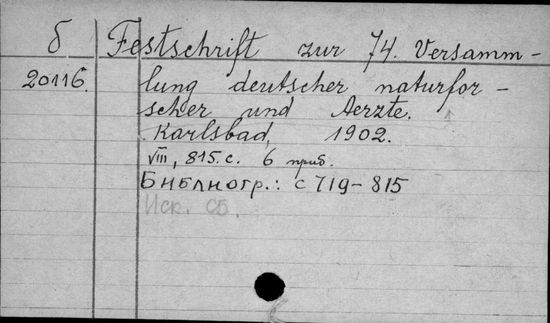 б
20116.
Festschrift zur 74. Versamm-
lung deutscher naturfor-
scher und Aerzte.
Karlsbad, 1902.
VIII, 815. с. 6 приб.
Библиогр.: с 719-815
Иск. Сб.